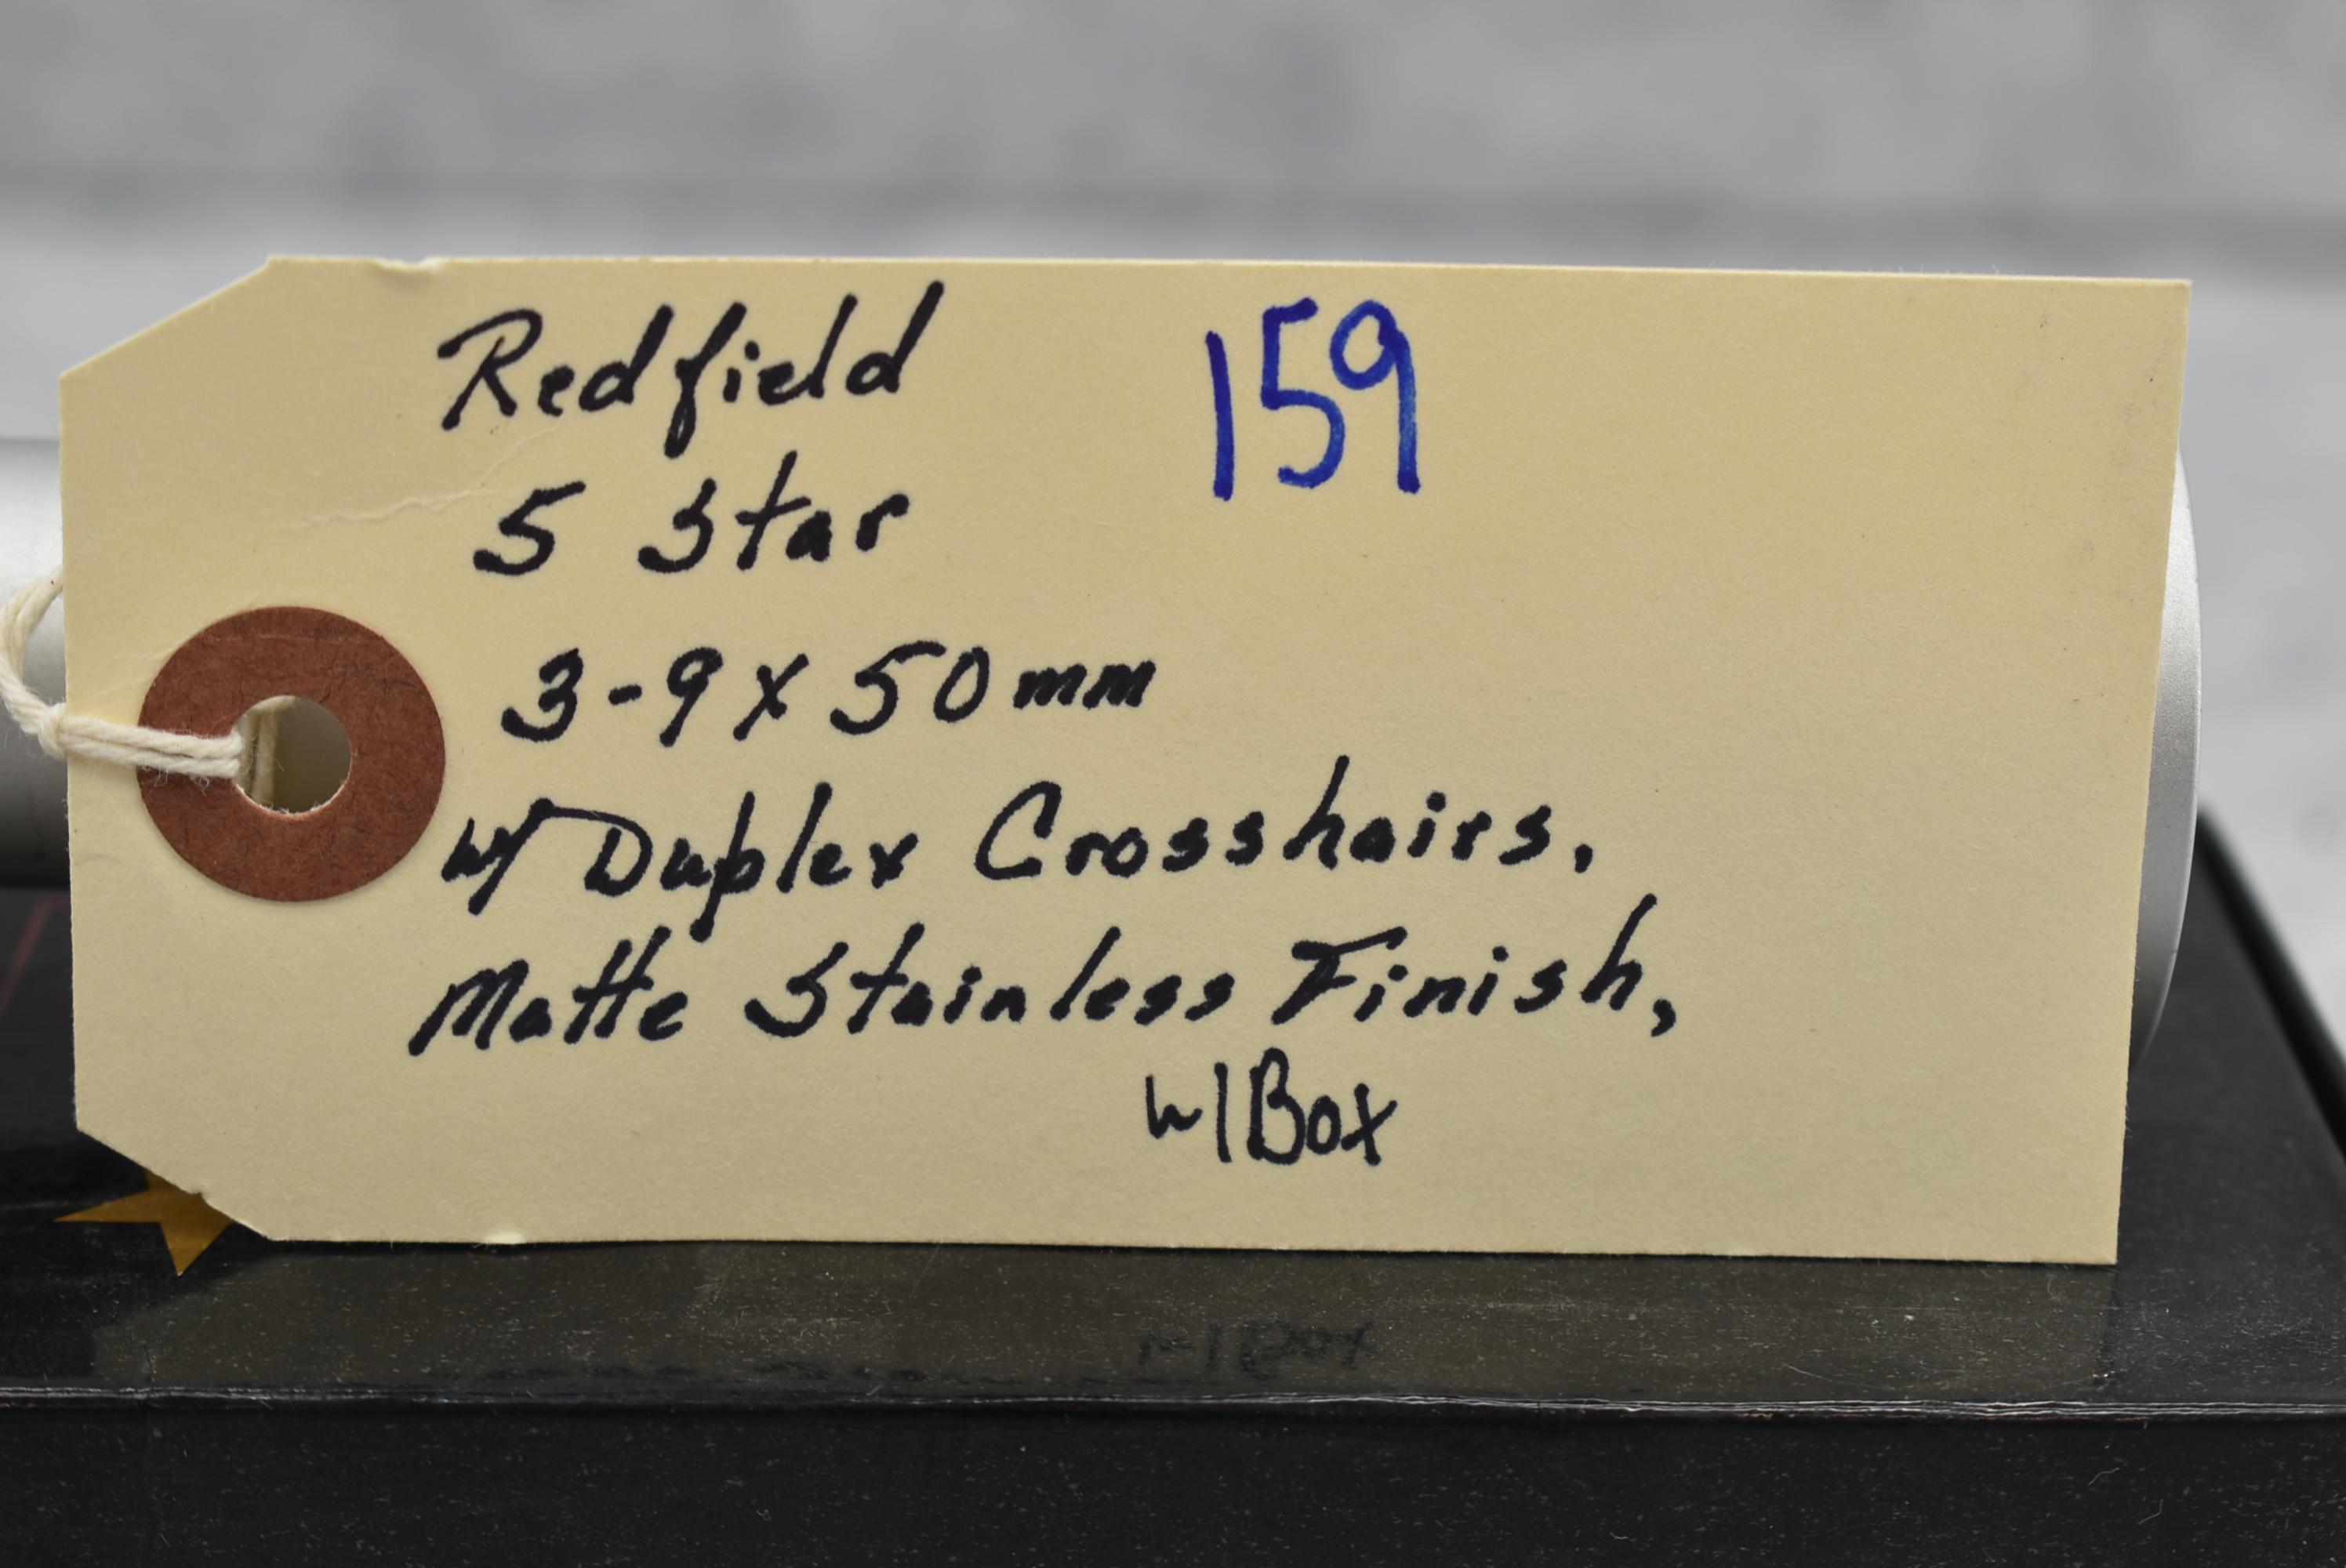 Redfield 159
5 Star
3-9x50mm
w/ Duplex Crosshairs,
Matte Stainless Finish,
w/Box